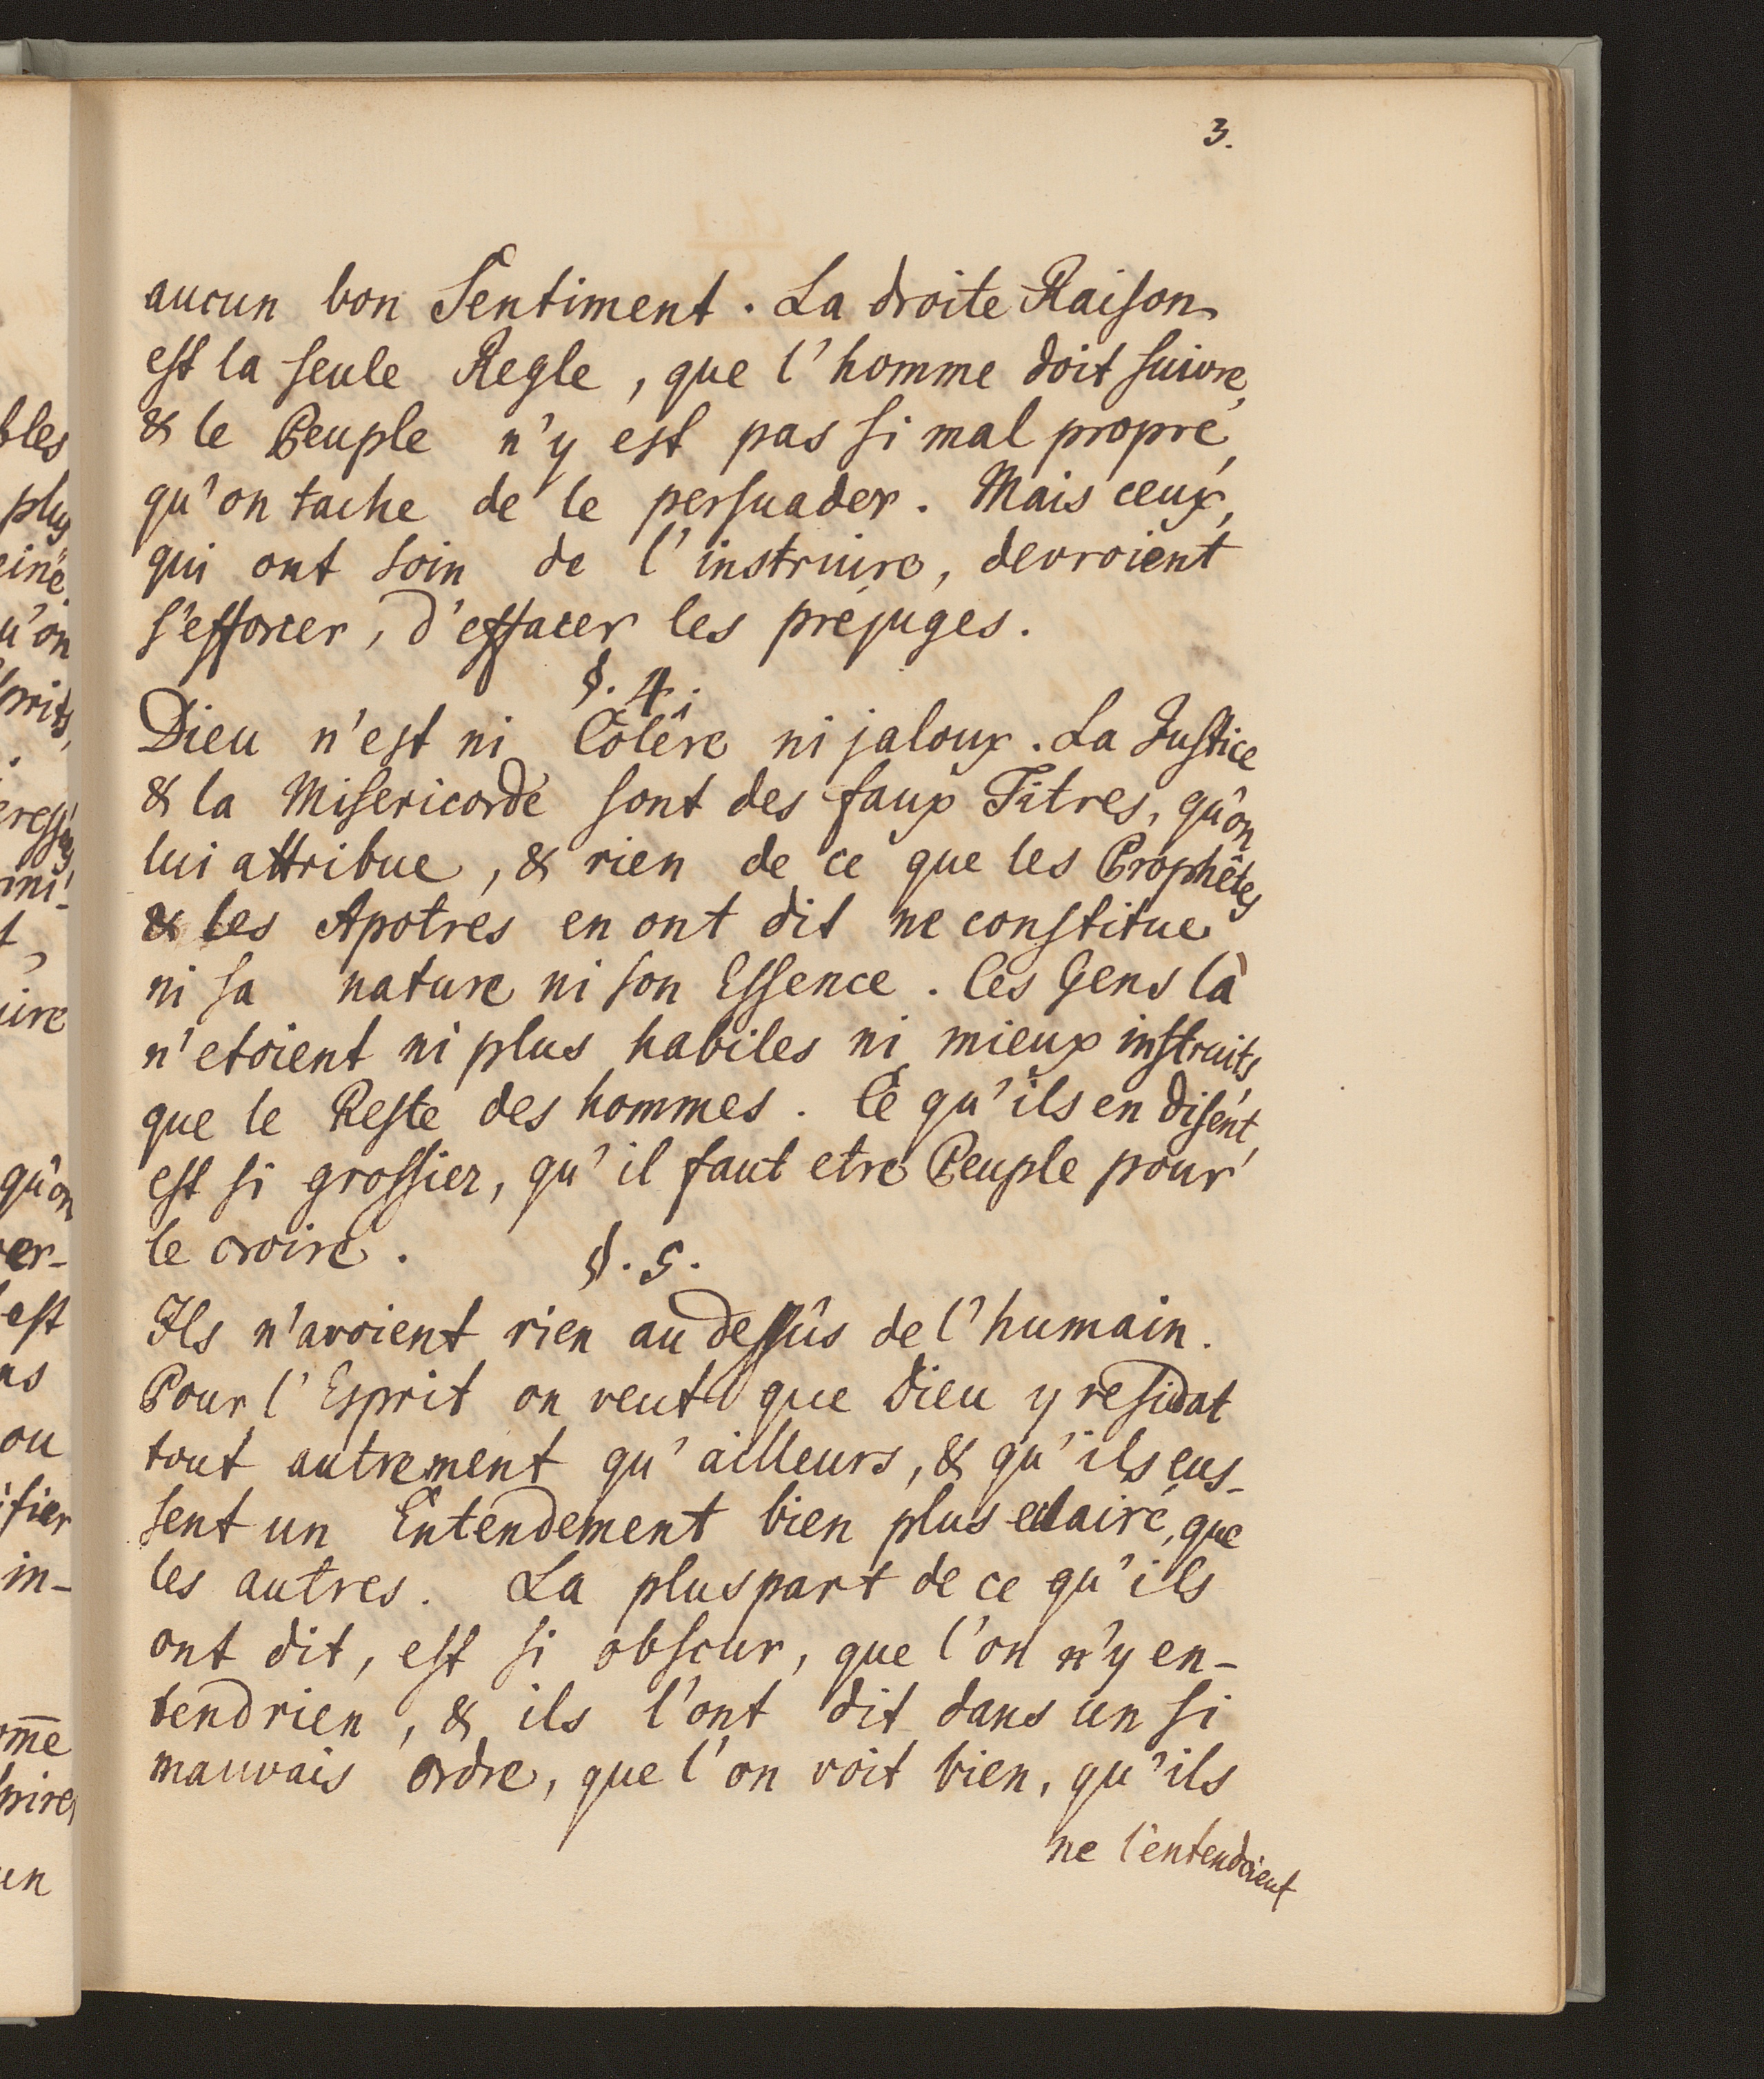 3.
aucun bon Sentiment. La droite Raison
est la seule Regle, que l'homme doit suivre,
& le Peuple n'y est pas si mal propre,
qu'on tache de le persuader. Mais ceux,
qui ont soin de l'instruire, devroient
s'efforcer, d'effacer les préjuges.
§. 4.
Dieu n'est ni Colêre ni jaloux. La Justice
& la Misericorde sont des faux Titres, qu'on
lui attribue, & rien de ce que les Prophêtes
& les Apotres en ont dit ne constitue
ni sa nature ni son Essence. Ces Gens là
n'etoient ni plus habiles ni mieux instruits
que le Reste des hommes. Ce qu'ils en disent,
est si grossier, qu'il faut etre Peuple pour
le croire.
§. 5.
Ils n'avoient rien au dessûs de l'humain.
Pour l'Esprit on veut que Dieu y residat
tout autrement qu'ailleurs, & qu'ils eus-
sent un Entendement bien plus eclairé, que
les autres. La pluspart de ce qu'ils
ont dit, est si obscur, que l'on n'y en-
tend rien, & ils l'ont dit dans un si
mauvais ordre, que l'on voit bien, qu'ils
ne l'entendoient
bles
plus
u'on
qu'on
ver-
est
ns
ou
in-
un